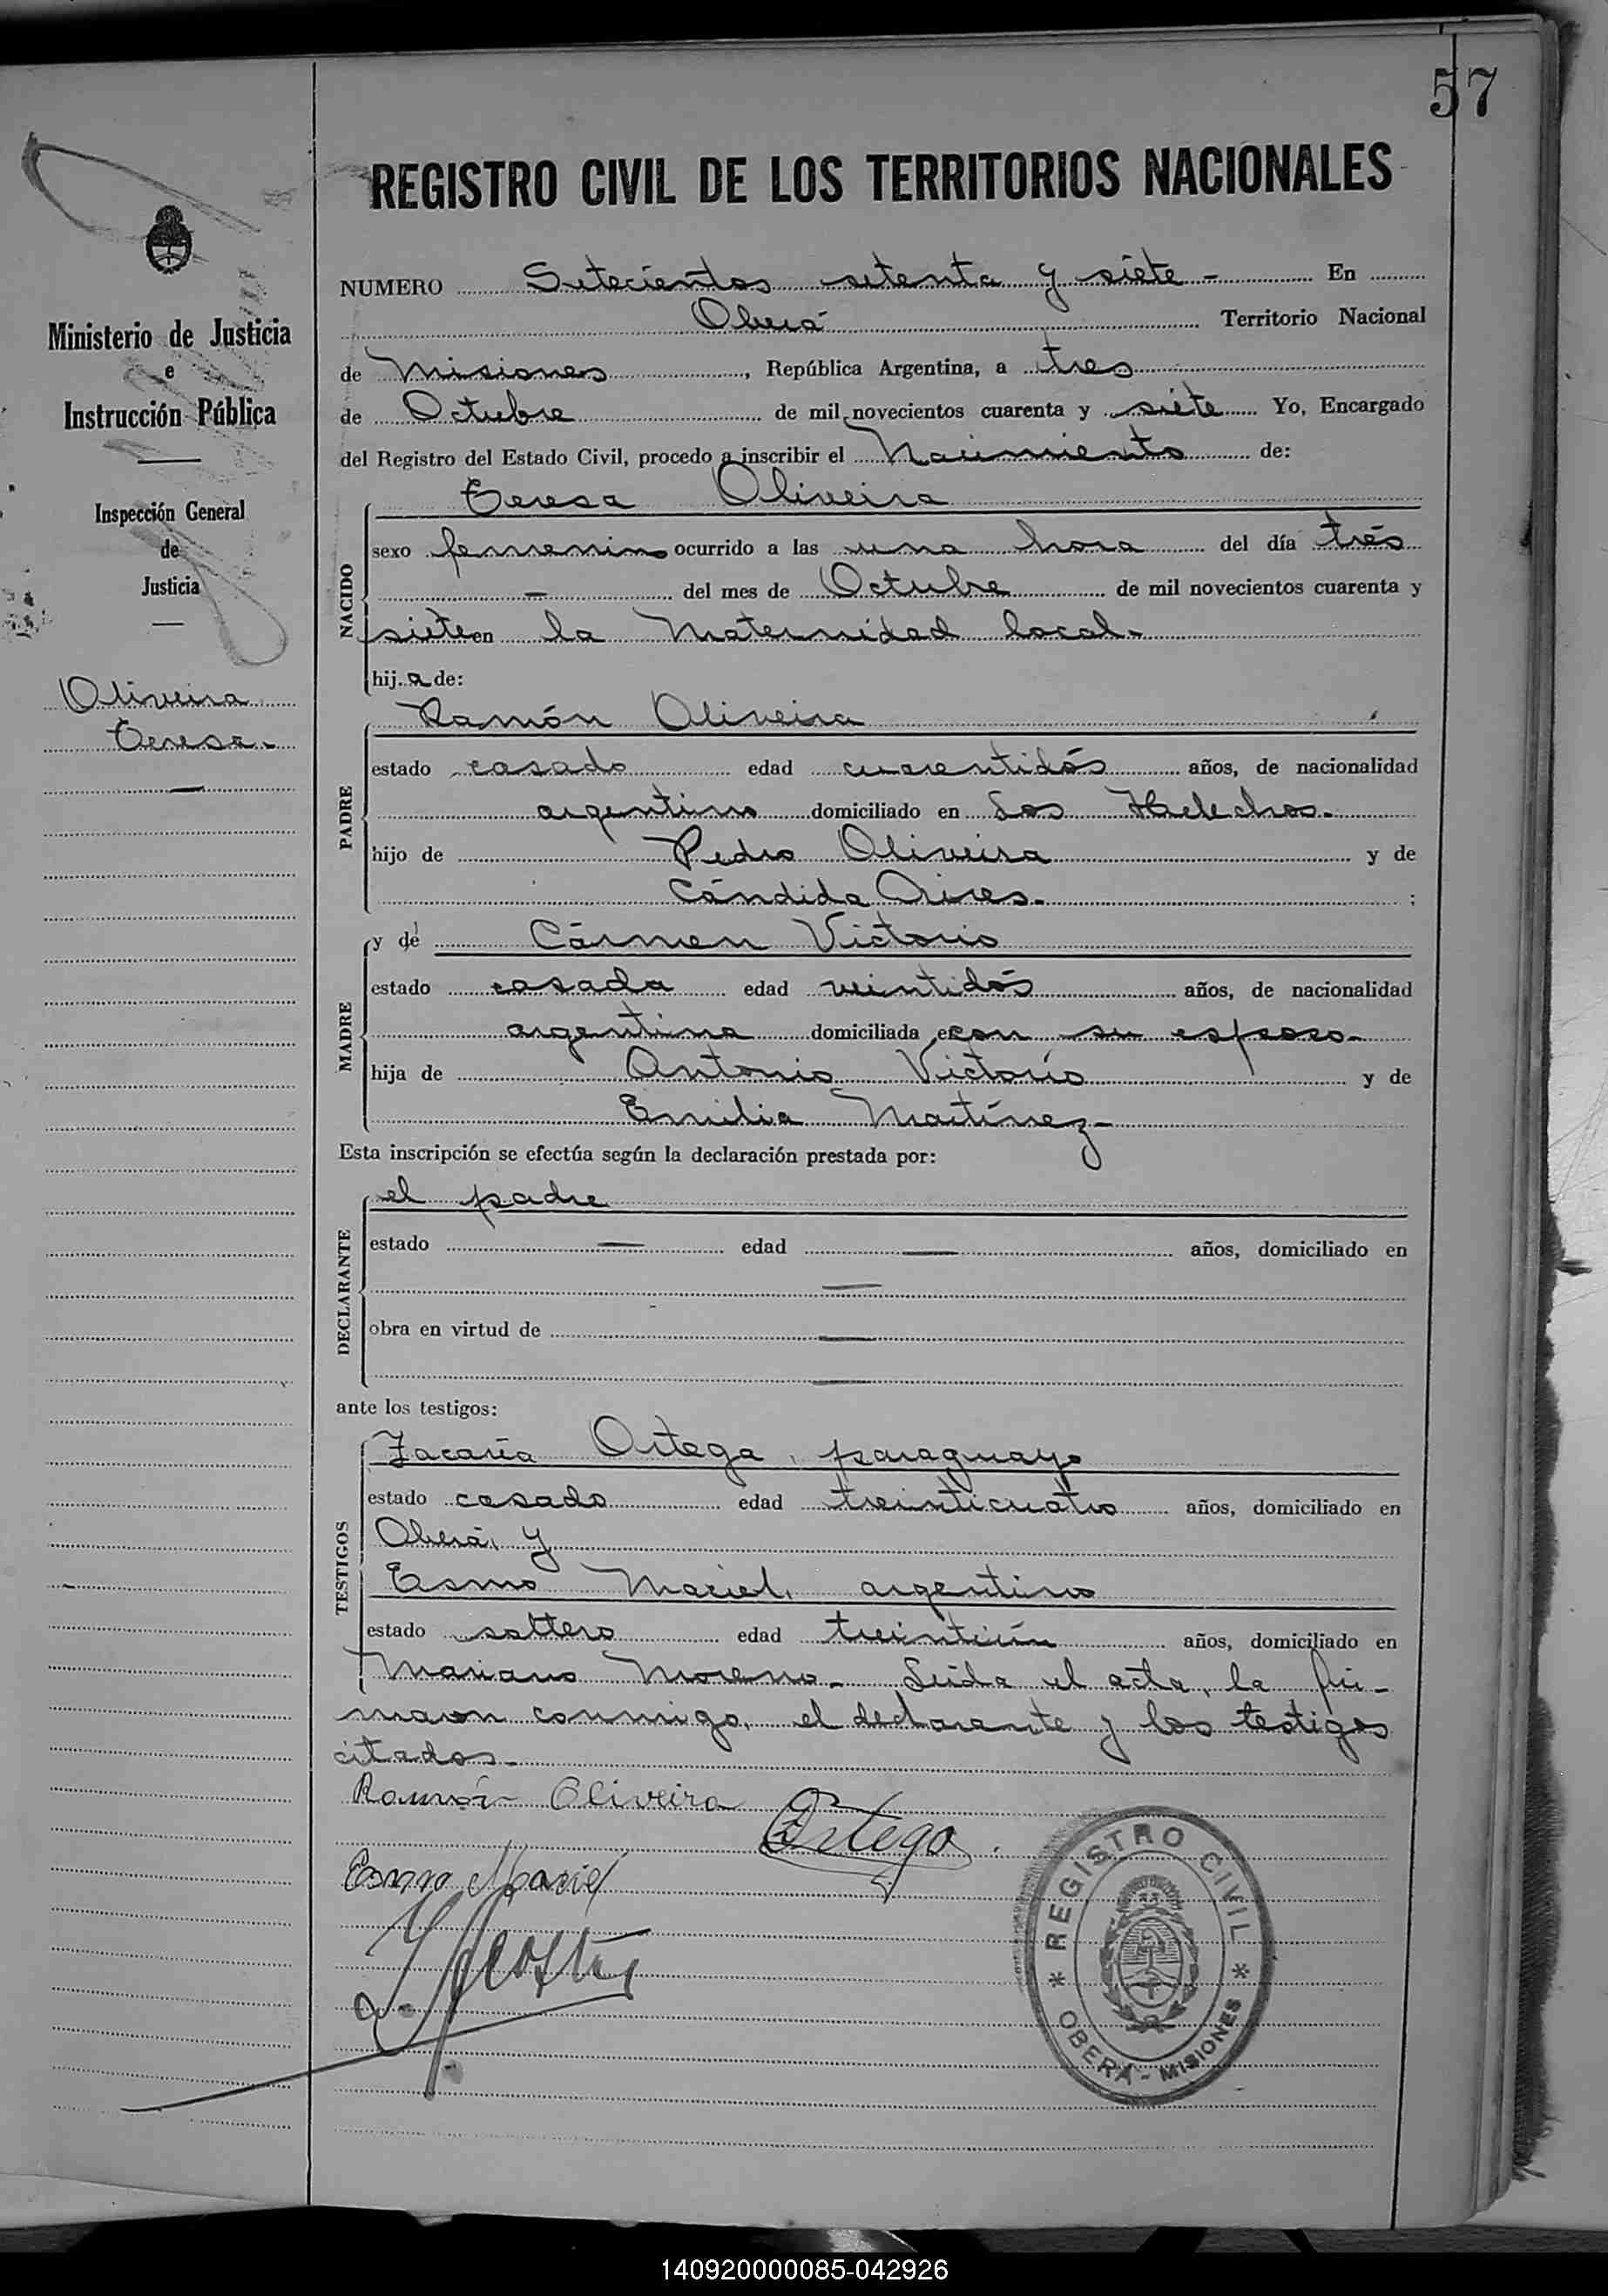 57
REGISTRO CIVIL DE LOS TERRITORIOS NACIONALES
Ministerio de Justicia
e
Instrucción Pública
Inspección General
de
Justicia
Oliveira
Teresa.-
NUMERO Setecientos setenta y siete - En
Oberá Territorio Nacional
de Misiones, República Argentina, a tres
de Octubre de mil novecientos cuarenta y siete Yo, Encargado
del Registro del Estado Civil, procedo a inscribir el Nacimiento de:
Teresa Oliveira
NACIDO
sexo femenino ocurrido a las una hora del día trés
- del mes de Octubre de mil novecientos cuarenta y
siete en la Maternidad local.-
hij.a de:
Ramón Oliveira
PADRE
estado casado edad cuarentidós años, de nacionalidad
argentino domiciliado en Los Helechos.-
hijo de Pedro Oliveira y de
Cándida Aires.- ;
y de Cármen Victorio
MADRE
estado casada edad veintidós años, de nacionalidad
argentina domiciliada con su esposo.-
hija de Antonio Victorio y de
Emilia Martínez-
Esta inscripción se efectúa según la declaración prestada por:
el padre
DECLARANTE
estado — edad — años, domiciliado en
—
obra en virtud de —
—
ante los testigos:
Zacaría Ortega, paraguayo
TESTIGOS
estado casado edad treinticuatro años, domiciliado en
Oberá, y
Esmo Maciel, argentino
estado soltero edad treintiún años, domiciliado en
Mariano Moreno.- Leída el acta, la fir-
maron conmigo, el declarante y los testigos
citados.-
Ramón Oliveira
Ortega
Esmo Maciel
Acosta
REGISTRO CIVIL
OBERÁ - MISIONES
140920000085-042926